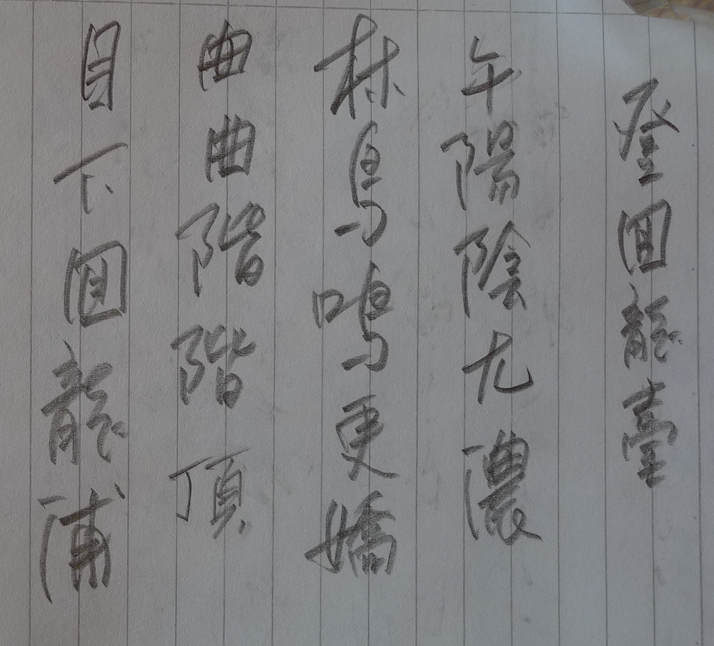 登回龍臺
午陽陰尤濃
林鳥鳴更嬌
曲曲階階頂
目下回龍浦